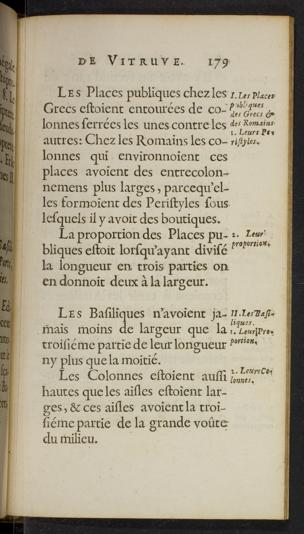 DE VITRUVE. 179
LES Places publiques chez les
Grecs eſtoient entourées de co-
lonnes ſerrées les unes contre les
autres: Chez les Romains les co-
lonnes qui environnoient ces
places avoient des entrecolon-
nemens plus larges, parcequ'el-
les formoient des Periſtyles ſous
leſquels il y avoit des boutiques.
I. Les Places
publiques
des Grecs &
des Romains
1. Leurs Pe-
riſtyles.
La proportion des Places pu-
bliques eſtoit lorſqu'ayant diviſé
la longueur en trois parties on
en donnoit deux à la largeur.
2. Leur
proportion.
LES Baſiliques n'avoient ja-
mais moins de largeur que la
troiſiéme partie de leur longueur
ny plus que la moitié.
II. Les Baſi-
liques.
1. Leur Pro-
portion.
Les Colonnes eſtoient auſſi
hautes que les aiſles eſtoient lar-
ges, & ces aiſles avoient la troi-
ſiéme partie de la grande voûte
du milieu.
2. Leurs Co-
lonnes.